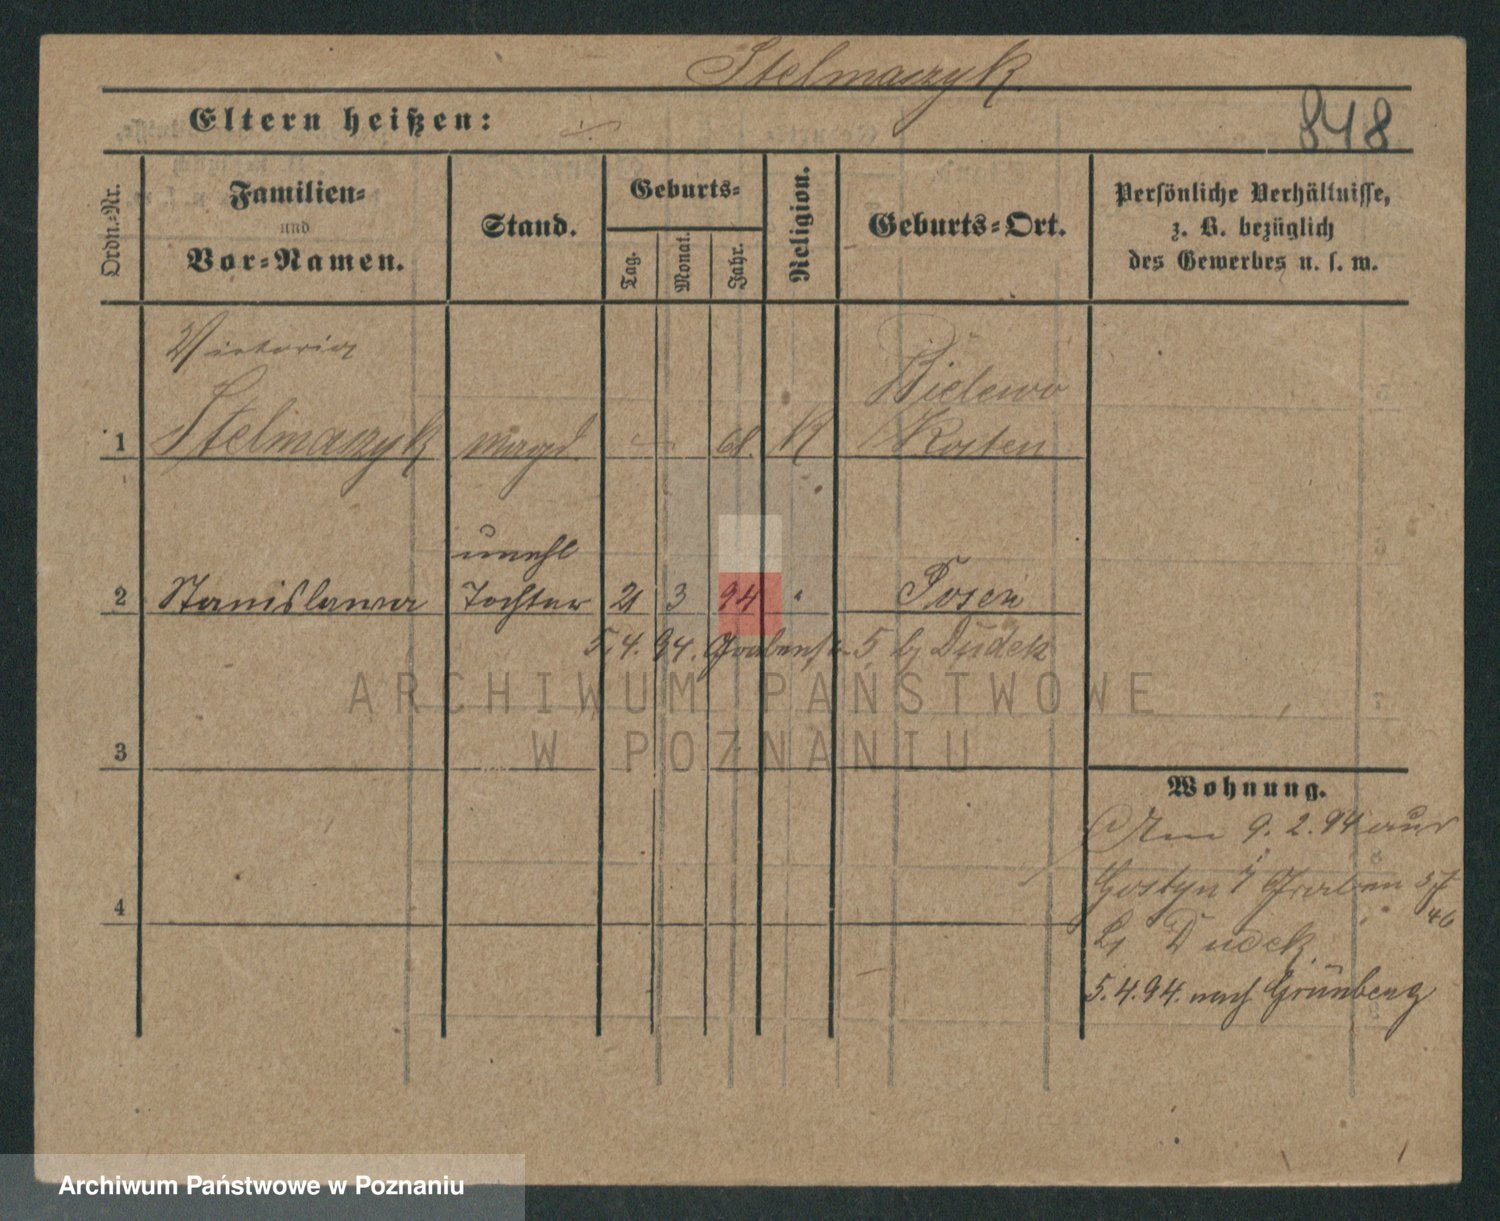 Stelmaczyk
848
Eltern heißen: ./.
Ordn.-Nr.
Familien-
und
Vor-Namen.
Stand.
Geburts-
Tag.
Monat.
Jahr.
Religion.
Geburts-Ort.
Persönliche Verhältnisse,
z. B. bezüglich
des Gewerbes u. s. w.
Victoria
Bielewo
1 Stelmaczyk Magd K Kosten
unehl
2 Stanislawa Tochter 21 3 94 " Posen
5.4.94. Grabenstr. 5 bj Dudek
ARCHIWUM PAŃSTWOWE
W POZNANIU
3
Wohnung.
Am 9. 2. 94 aus
Gostyn Graben
4
46
bj Dudek
5.4.94. nach Grünberg
Archiwum Państwowe w Poznaniu